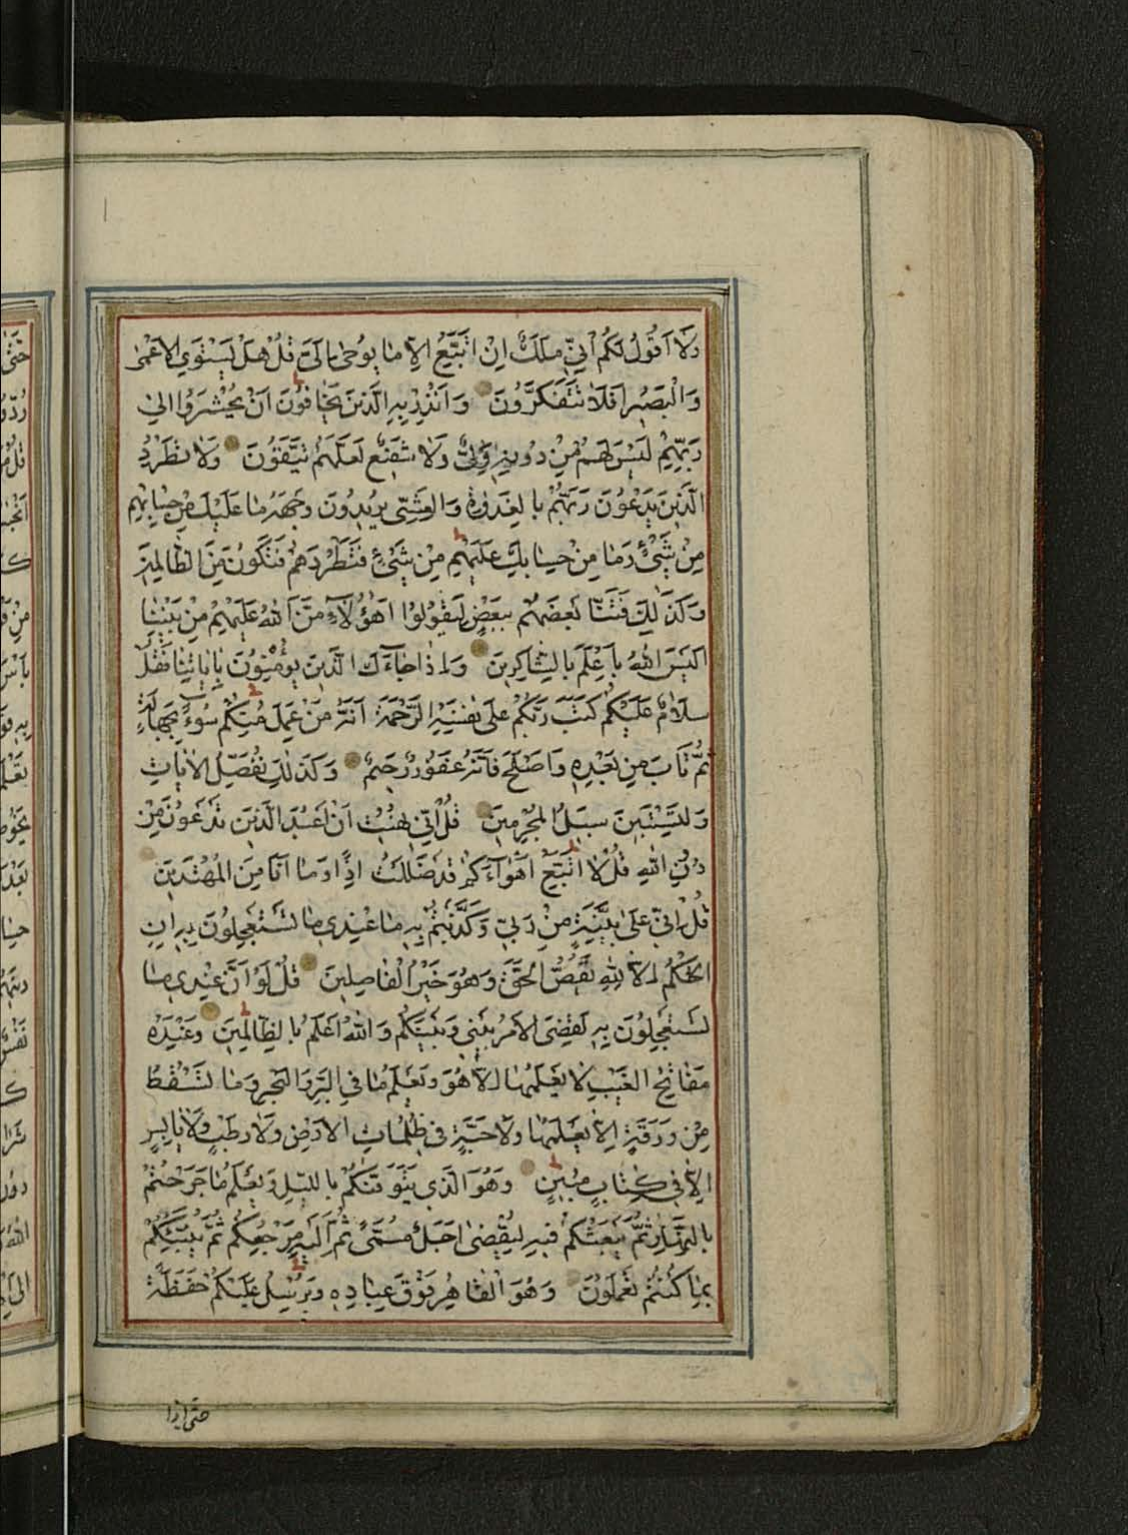 وَلَا اَقُولُ لَكُمْ اِنِّي مَلَكٌ اِنْ اَتَّبِعُ اِلَّا مَا يُوحٰى اِلَيَّ قُلْ هَلْ يَسْتَوِي الْاَعْمٰى
وَالْبَصِيرُ اَفَلَا تَتَفَكَّرُونَ وَاَنْذِرْ بِهِ الَّذِينَ يَخَافُونَ اَنْ يُحْشَرُوا اِلٰى
رَبِّهِمْ لَيْسَ لَهُمْ مِنْ دُونِهِ وَلِيٌّ وَلَا شَفِيعٌ لَعَلَّهُمْ يَتَّقُونَ وَلَا تَطْرُدِ
الَّذِينَ يَدْعُونَ رَبَّهُمْ بِالْغَدٰوةِ وَالْعَشِيِّ يُرِيدُونَ وَجْهَهُ مَا عَلَيْكَ مِنْ حِسَابِهِمْ
مِنْ شَيْءٍ وَمَا مِنْ حِسَابِكَ عَلَيْهِمْ مِنْ شَيْءٍ فَتَطْرُدَهُمْ فَتَكُونَ مِنَ الظَّالِمِينَ
وَكَذٰلِكَ فَتَنَّا بَعْضَهُمْ بِبَعْضٍ لِيَقُولُوا اَهٰؤُلَاءِ مَنَّ اللهُ عَلَيْهِمْ مِنْ بَيْنِنَا
اَلَيْسَ اللهُ بِاَعْلَمَ بِالشَّاكِرِينَ وَاِذَا جَاءَكَ الَّذِينَ يُؤْمِنُونَ بِاٰيَاتِنَا فَقُلْ
سَلَامٌ عَلَيْكُمْ كَتَبَ رَبُّكُمْ عَلٰى نَفْسِهِ الرَّحْمَةَ اَنَّهُ مَنْ عَمِلَ مِنْكُمْ سُوءً بِجَهَالَةٍ
ثُمَّ تَابَ مِنْ بَعْدِهِ وَاَصْلَحَ فَاَنَّهُ غَفُورٌ رَحِيمٌ وَكَذٰلِكَ نُفَصِّلُ الْاٰيَاتِ
وَلِتَسْتَبِينَ سَبِيلُ الْمُجْرِمِينَ قُلْ اِنِّي نُهِيتُ اَنْ اَعْبُدَ الَّذِينَ تَدْعُونَ مِنْ
دُونِ اللهِ قُلْ لَا اَتَّبِعُ اَهْوَاءَكُمْ قَدْ ضَلَلْتُ اِذًا وَمَا اَنَا مِنَ الْمُهْتَدِينَ
قُلْ اِنِّي عَلٰى بَيِّنَةٍ مِنْ رَبِّي وَكَذَّبْتُمْ بِهِ مَا عِنْدِي مَا تَسْتَعْجِلُونَ بِهِ اِنِ
الْحُكْمُ اِلَّا لِلّٰهِ يَقُصُّ الْحَقَّ وَهُوَ خَيْرُ الْفَاصِلِينَ قُلْ لَوْ اَنَّ عِنْدِي مَا
تَسْتَعْجِلُونَ بِهِ لَقُضِيَ الْاَمْرُ بَيْنِي وَبَيْنَكُمْ وَاللهُ اَعْلَمُ بِالظَّالِمِينَ وَعِنْدَهُ
مَفَاتِحُ الْغَيْبِ لَا يَعْلَمُهَا اِلَّا هُوَ وَيَعْلَمُ مَا فِي الْبَرِّ وَالْبَحْرِ وَمَا تَسْقُطُ
مِنْ وَرَقَةٍ اِلَّا يَعْلَمُهَا وَلَا حَبَّةٍ فِي ظُلُمَاتِ الْاَرْضِ وَلَا رَطْبٍ وَلَا يَابِسٍ
اِلَّا فِي كِتَابٍ مُبِينٍ وَهُوَ الَّذِي يَتَوَفّٰكُمْ بِاللَّيْلِ وَيَعْلَمُ مَا جَرَحْتُمْ
بِالنَّهَارِ ثُمَّ يَبْعَثُكُمْ فِيهِ لِيُقْضٰى اَجَلٌ مُسَمًّى ثُمَّ اِلَيْهِ مَرْجِعُكُمْ ثُمَّ يُنَبِّئُكُمْ
بِمَا كُنْتُمْ تَعْمَلُونَ وَهُوَ الْقَاهِرُ فَوْقَ عِبَادِهِ وَيُرْسِلُ عَلَيْكُمْ حَفَظَةً
حتى اذا